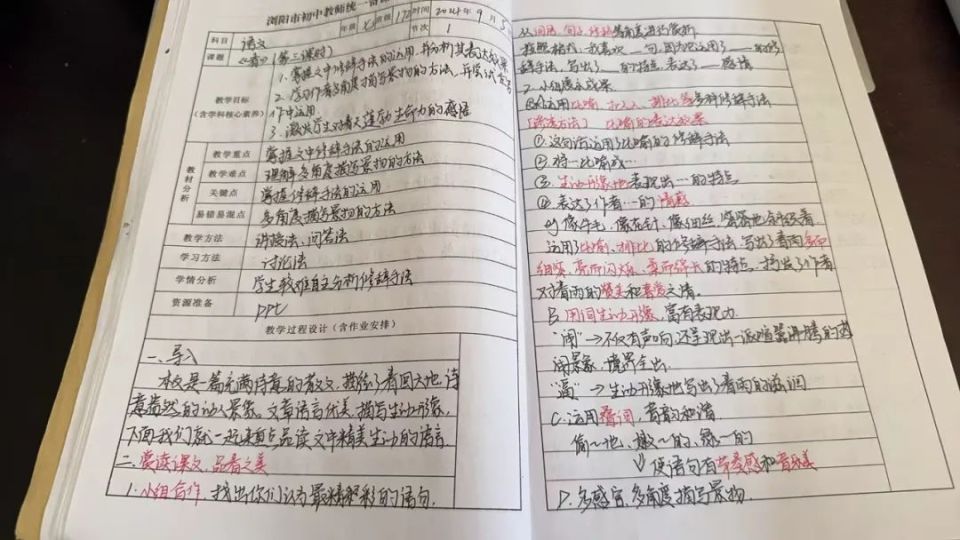 浏阳市初中教师统一备课
年级 七 班级 172 时间 2024年9月5
科目 语文 节次 1
课题 《春》(第二课时)
教学目标
(含学科核心素养)
1、掌握文中修辞手法的运用,并分析其表达效果
2、学习作者多角度描写景物的方法,并尝试在写
作中运用
3、激发学生对春天蓬勃生命力的感悟
教材分析
教学重点 掌握文中修辞手法的运用
教学难点 理解多角度描写景物的方法
关键点 掌握修辞手法的运用
易错易混点 多角度描写景物的方法
教学方法 讲授法、问答法
学习方法 讨论法
学情分析 学生较难自主分析修辞手法
资源准备 PPT
教学过程设计(含作业安排)
一、导入
本文是一篇充满诗意的散文,描绘了春回大地,诗
意盎然的动人景象。文章语言优美,描写生动形象,
下面我们就一起来重点品读文中精美生动的语言
二、赏读课文,品春之美
1、小组合作,找出你们认为最精彩的语句,
从词语、句子、修辞等角度进行赏析
按照格式,我喜欢__句,因为它运用了__的修
辞手法,写出了__的特点,表达了__感情
2、小组展示成果
A、运用比喻、拟人、排比等多种修辞手法
[答题方法] 比喻的表达效果
①这句话运用了比喻的修辞手法
②将…比喻成…
③生动形象地表现出…的特点
④表达了作者…的情感
eg 像牛毛,像花针,像细丝,密密地斜织着
运用了比喻、排比的修辞手法,写出了春雨多而
细密、亮而闪烁、柔而绵长的特点,抒发了作者
对春雨的赞美和喜爱之情。
B、用词生动形象,富有表现力
“闹”→不仅有声响,还呈现出一派喧嚣沸腾的热
闹景象,境界全出
“逼”→生动形象地写出了春雨的滋润
C、运用叠词,音韵和谐
偷~地,嫩~的,绿~的
↓使语句有节奏感和音乐美
D、多感官、多角度描写景物